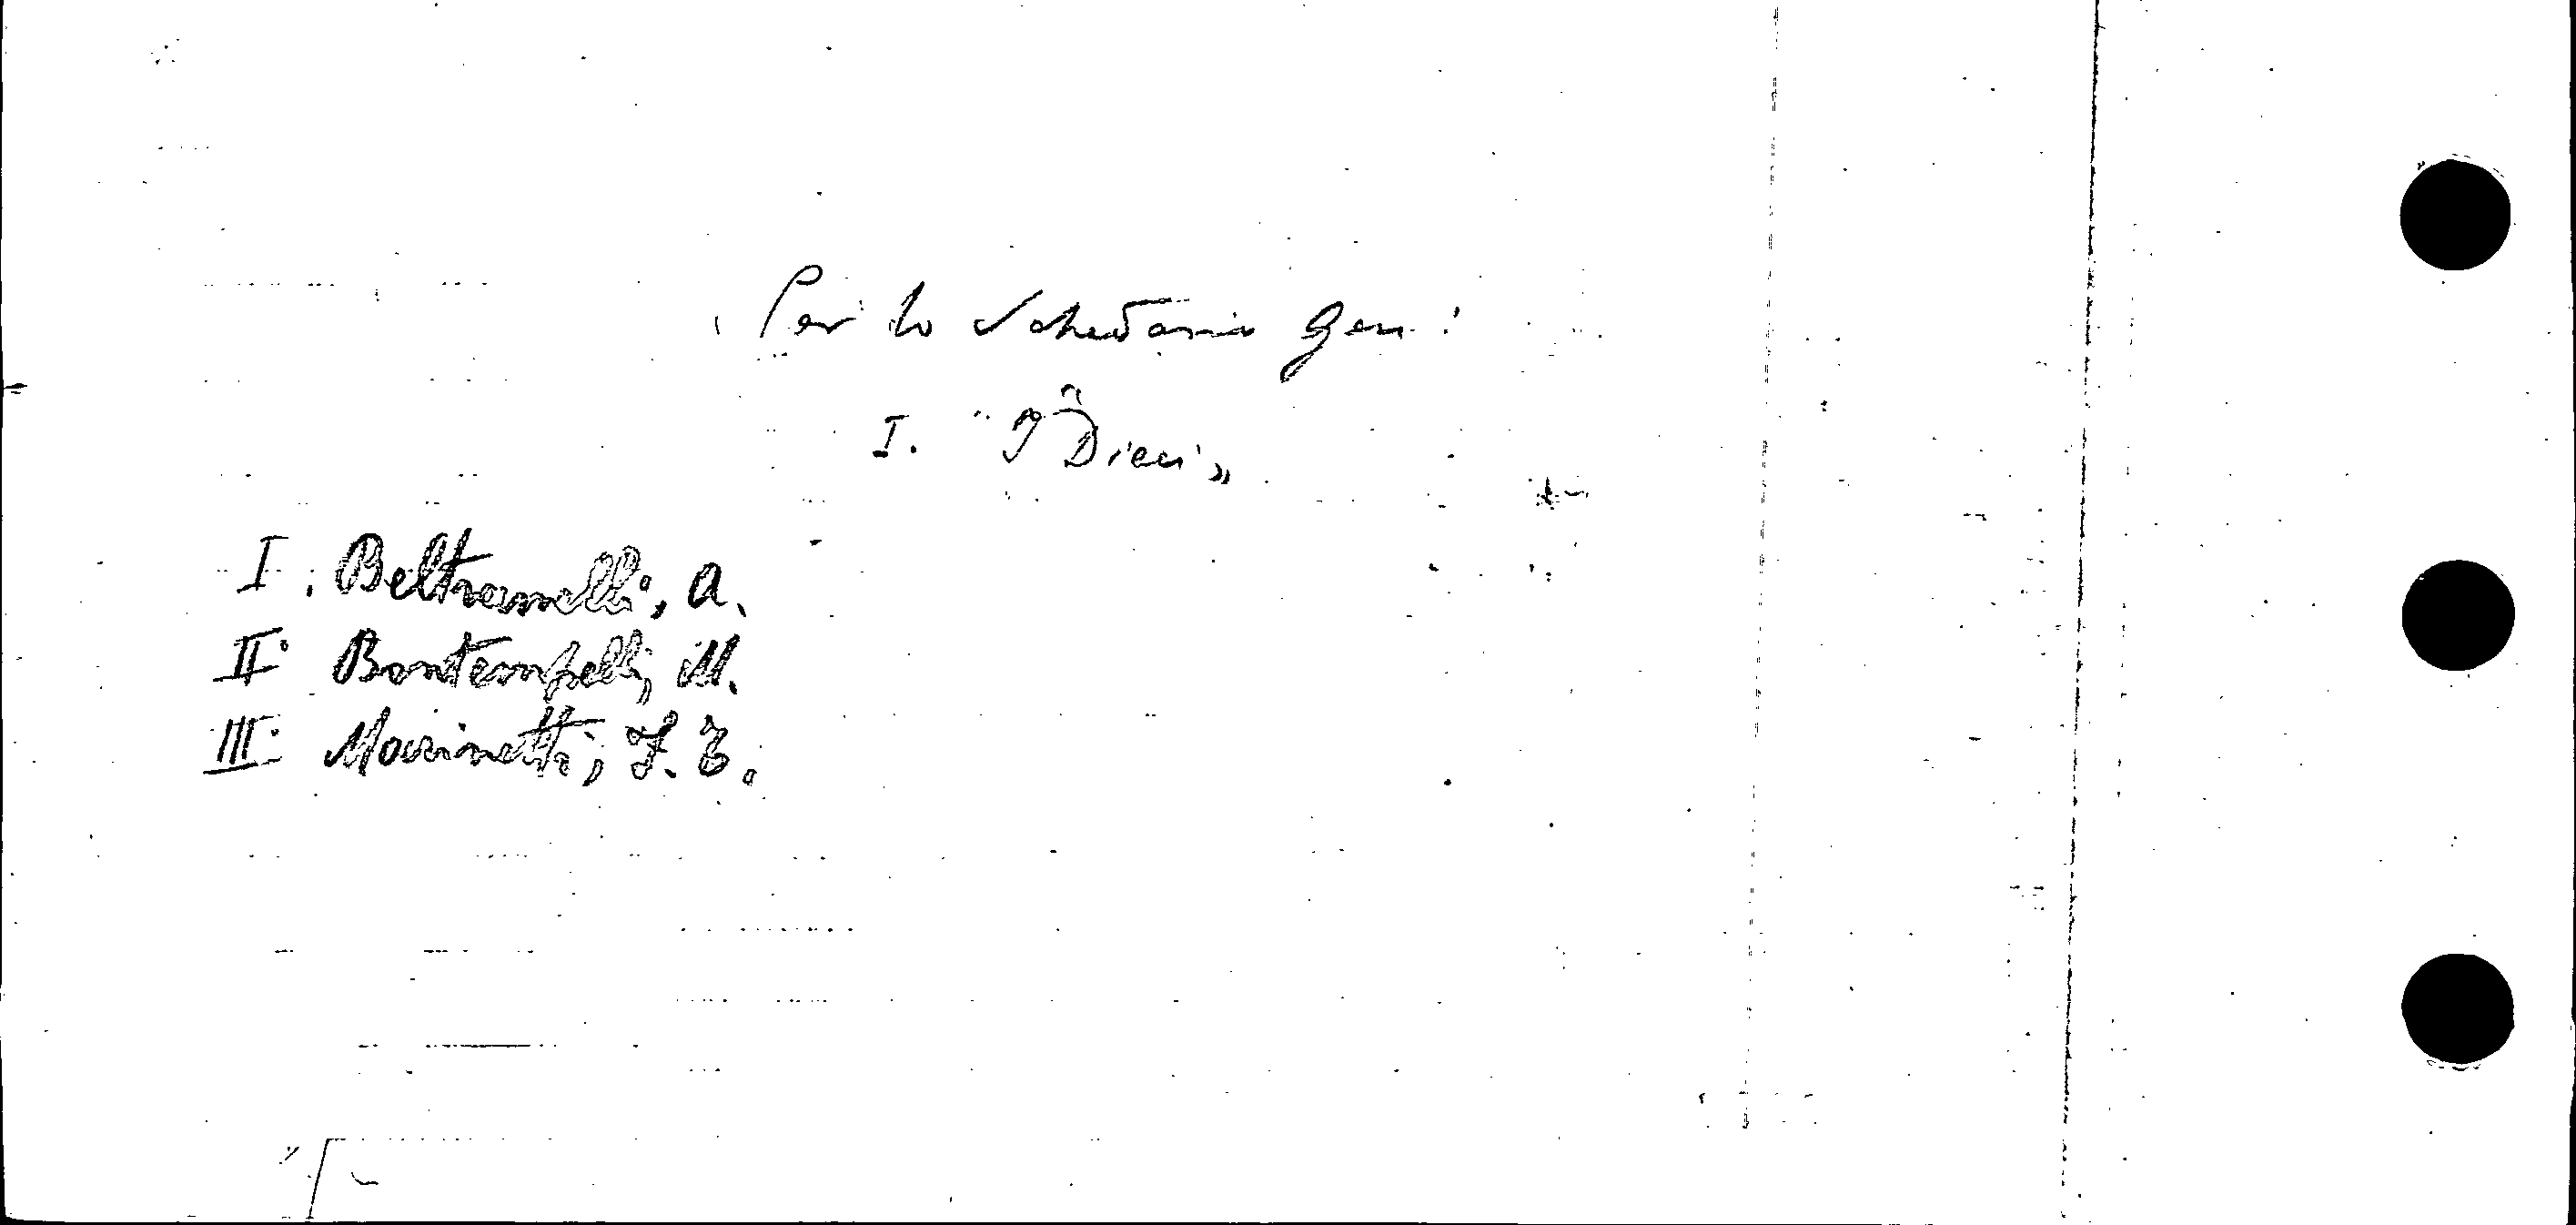 Per lo Schedario Gen:
I. "I Dieci"
I. Beltramelli, A.
II. Bontempelli, M.
III. Marinetti, F. T.